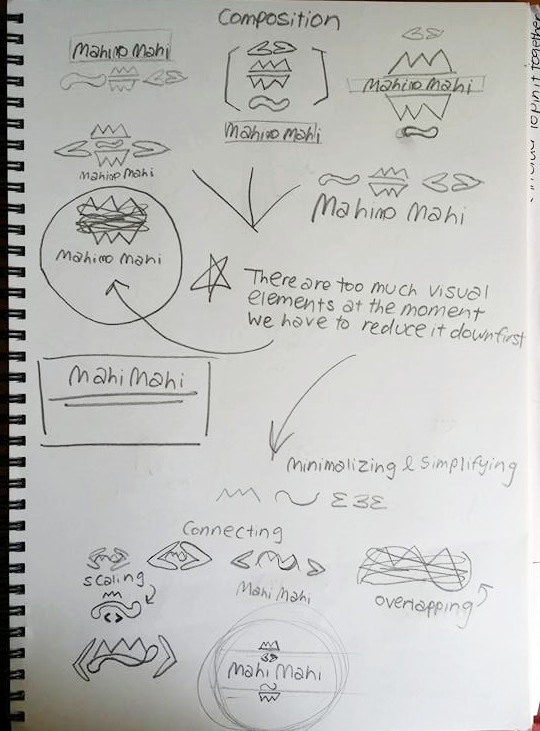 Composition
Mahimo Mahi
Mahimo Mahi
Mahimo Mahi
Mahimo Mahi
Mahimo Mahi
Mahimo Mahi
There are too much visual
elements at the moment
we have to reduce it down first
Mahi Mahi
minimalizing & simplifying
Connecting
scaling
Mahi Mahi
overlapping
Mahi Mahi
together